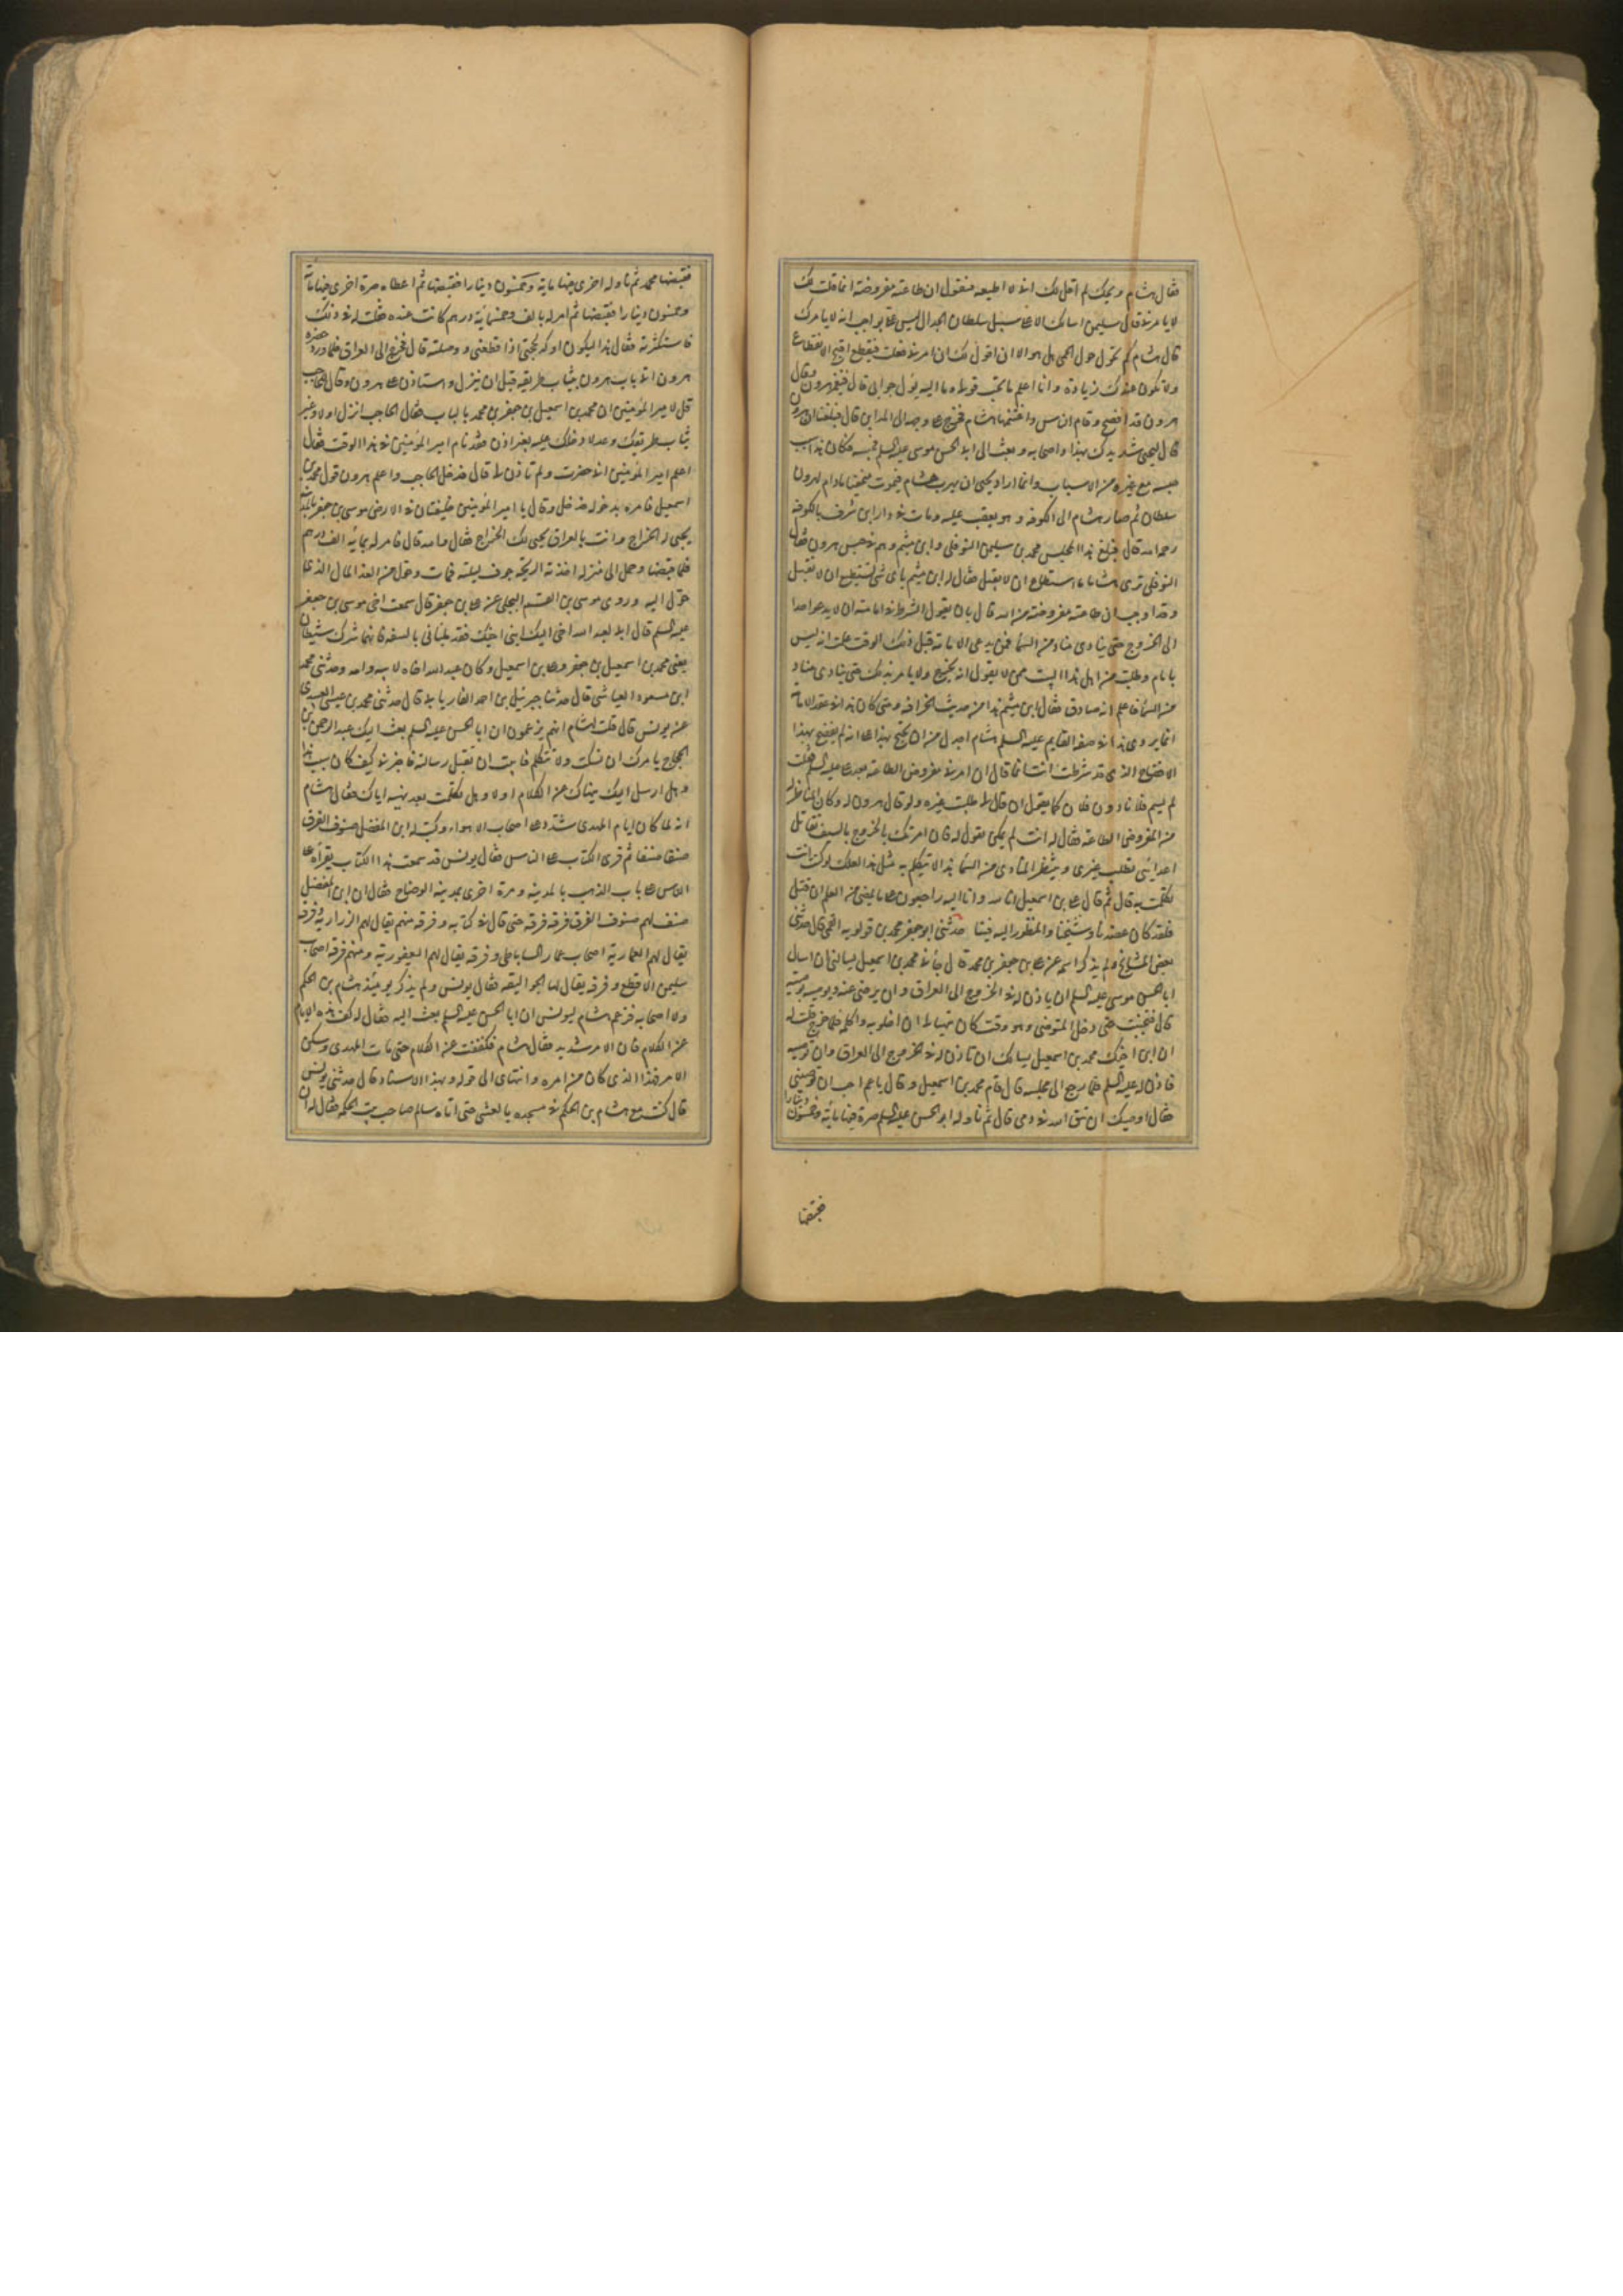 فقال هشام ويحك لم اقل لك انى لا اطيعه فنقول ان طاعته مفروضة انما قلت لك
لا يامرنى قال سليمن اسالك الا على سبيل سلطان الجدال ليس على بواجب انه لا يامرك
قال هشام كم تحول حول الحمى هل هو الا ان اقول لك ان امرنى فعلت فينقطع اقبح الانقطاع
ولا تكون عندك زيادة وانا اعلم ما تحت قوله وما اليه يؤل جوابى قال فتغير هرون وقال
هرون قد افصح وقام الناس واغتنمها هشام فخرج على وجهه الى المداين قال فبلغنا ان هرون
قال ليحيى شد يدك بهذا واصحابه وبعث الى ابى الحسن موسى عليه السلم فحبسه فكان هذا سبب
حبسه مع غيره من الاسباب وانما اراد يحيى ان يهرب هشام فيموت مختفيا ما دام لهرون
سلطان ثم صار هشام الى الكوفه وهو بعقب عليه ومات فى دار ابن شرف بالكوفه
رحمه الله قال فبلغ هذا المجلس محمد بن سليمن النوفلى وابن ميثم وهم فى حبس هرون فقال
النوفلى ترى هشاما ما استطاع ان لا يقبل فقال له ابن ميثم باى شى تستطيع ان لا تقبل
وقد اوجب ان طاعته مفروضة من الله قال بان يقول الشرط فى امامته ان لا يدعو احدا
الى الخروج حتى ينادى مناد من السماء فمن يدعى الامامة قبل ذلك الوقت علمت انه ليس
بامام وطلبت من اهل هذا البيت من لا يقول انه يخرج ولا يامر بذلك حتى ينادى مناد
من السماء فاعلم انه صادق فقال ابن ميثم هذا من حديث الخرافة ومتى كان هذا فى عقد الامامة
انما يروى هذا فى صفة القايم عليه السلم هشام اجدل من ان يحتج بهذا على انه لم يفصح بهذا
الافصاح الذى قد شرطت انت انما قال ان امرنى مفروض الطاعه بعد على عليه السلم فعلت
لم يسم فلانا دون فلان كما يقول ان قال لى طلبت غيره ولو قال هرون له وكان المناظر له
من المفروض الطاعه فقال له انت لم يكن يقول له فان امرتك بالخروج بالسيف تقاتل
اعدائى تطلب غيرى وينتظر المنادى من السماء هذا لا يتكلم به مثل هذا لعلك لو كنت انت
تكلمت به قال ثم قال على بن اسمعيل انا لله وانا اليه راجعون على ما يمضى من العلم ان قتل
فلقد كان عضدنا وشيخنا والمنظور اليه فينا حدثنى ابو جعفر محمد بن قولويه القمى قال حدثنى
بعض المشايخ ولم يذكر اسمه عن على بن جعفر بن محمد قال جاءنى محمد بن اسمعيل يسالنى ان اسال
ابا الحسن موسى عليه السلم ان ياذن له فى الخروج الى العراق وان يرضى عنه ويوصيه بوصية
قال فتجنبت حتى دخل المتوضى وهو وقت كان يتهيا لى ان اخلو به واكلمه فلما خرج قلت له
ان ابن اخيك محمد بن اسمعيل يسالك ان تاذن له فى الخروج الى العراق وان توصيه
فاذن له عليه السلم فلما رجع الى مجلسه قال قام محمد بن اسمعيل وقال يا عم احب ان توصينى
فقال اوصيك ان تتق الله فى دمى قال ثم ناوله ابو الحسن عليه السلم صرة فيها مائة وخمسون دينارا
فقبضها
فقبضها محمد ثم ناوله اخرى فيها مائة وخمسون دينارا فقبضها ثم اعطاه صرة اخرى فيها مائة
وخمسون دينارا فقبضها ثم امر له بالف وخمسمائة درهم كانت عنده فقلت له فى ذلك
فاستكثرته فقال هذا ليكون اوكد لحجتى اذا قطعنى ووصلته قال فخرج الى العراق فلما ورد حضرة
هرون اتى باب هرون بثياب طريقه قبل ان ينزل واستاذن على هرون وقال للحاجب
قل لامير المؤمنين ان محمد بن اسمعيل بن جعفر بن محمد بالباب فقال الحاجب انزل اولا وغير
ثياب طريقك وعد لادخلك عليه بغير اذن فقد نام امير المؤمنين فى هذا الوقت فقال
اعلم امير المؤمنين انى حضرت ولم تاذن لى قال فدخل الحاجب واعلم هرون قول محمد بن
اسمعيل فامره بدخوله فدخل وقال يا امير المؤمنين خليفتان فى الارض موسى بن جعفر بالمدينة
يجبى له الخراج وانت بالعراق يجبى لك الخراج فقال والله قال فامر له بمائة الف درهم
فلما قبضها وحمل الى منزله اخذته الريحة جوف ليلته فمات وحول من الغد المال الذى
حول اليه وروى موسى بن القسم البجلى عن على بن جعفر قال سمعت اخى موسى بن جعفر
عليه السلم قال ابى لعبد الله اخى اليك ابنى اخيك فقد بليانى بالسفه فانهما شرك شيطان
يعنى محمد بن اسمعيل بن جعفر وعلى بن اسمعيل وكان عبد الله اخاه لابيه وامه وحدثنى محمد
ابن مسعود العياشى قال حدثنا جبرئيل بن احمد الفاريابى قال حدثنى محمد بن عيسى العبيدى
عن يونس قال قلت لهشام انهم يزعمون ان ابا الحسن عليه السلم بعث اليك عبد الرحمن بن
الحجاج يامرك ان تسكت ولا تتكلم فابيت ان تقبل رسالته فاخبرنى كيف كان سبب هذا
وهل ارسل اليك ينهاك عن الكلام او لا وهل تكلمت بعد نهيه اياك فقال هشام
انه لما كان ايام المهدى شدد على اصحاب الاهواء وكتب له ابن المفضل صنوف الفرق
صنفا صنفا ثم قرى الكتاب على الناس فقال يونس قد سمعت هذا الكتاب يقرأه على
الناس على باب الذهب بالمدينه ومرة اخرى بمدينه الوضاح فقال ان ابن المفضل
صنف لهم صنوف الفرق فرقه فرقه حتى قال فى كتابه وفرقه منهم يقال لهم الزرارية وفرقه
يقال لهم العماريه اصحاب عمار الساباطى وفرقه يقال لهم اليعفورية ومنهم فرقه اصحاب
سليمن الاقطع وفرقه يقال لها الجواليقه فقال يونس ولم يذكر يومئذ هشام بن الحكم
ولا اصحابه فزعم هشام ليونس ان ابا الحسن عليه السلم بعث اليه فقال له كف هذه الايام
عن الكلام فان الامر شديد فقال هشام فكففت عن الكلام حتى مات المهدى وسكن
الامر فهذا الذى كان من امره وانتهاى الى قوله وبهذا الاسناد قال حدثنى يونس
قال كنت مع هشام بن الحكم فى مسجده بالعشى حتى اتاه سالم صاحب بيت الحكمه فقال له ان